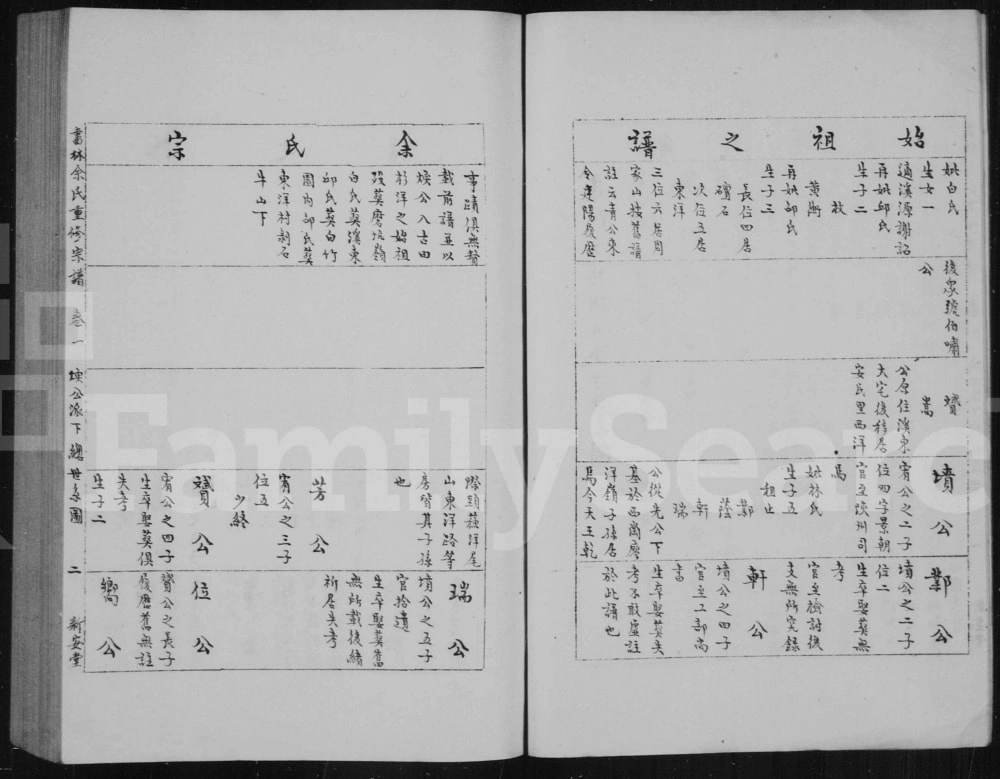 始祖之譜
妣白氏
生女一
適溪源謝詔
再妣邱氏
生子二
放
黃衡
再妣邱氏
生子三
長位四居
礵石
次位五居
東洋
三位六居周
家山按舊譜
註云青公來
今建陽履歷
後眾號伯嘯
公
嵩
公原住溪東
大宅後移居
安民里西洋
墳公
賓公之二子
位四字景朝
官至
州司
馬
妣林氏
生子五
祖止
鄴
蔭
軒
瑞
公從先公下
基於西
廖
洋嶺子孫居
焉今天王乾
鄴公
墳公之二子
位二
生卒娶葬無
考
官至檢討後
支無所究錄
軒公
墳公之四子
官至工部尚
書
生卒娶葬失
考不敢虛註
於此譜也
余氏宗
事蹟俱無贅
載前譜並以
煥公入古田
杉洋之始祖
歿葬磨坑嶺
白氏葬溪東
邱氏葬白竹
園內邱氏葬
東洋村剥石
牛山下
洋尾
山東洋路等
房皆其子孫
也
芳公
賓公之三子
位五
少終
贇公
賓公之四子
生卒娶葬俱
失考
生子二
瑞公
墳公之五子
官拾遺
生卒娶葬舊
無所載後續
祈居失考
位公
贇公之長子
履歷舊無註
嚮公
書林余氏重修宗譜 卷一 煥公派下總世系圖 二 新安堂
FamilySearc